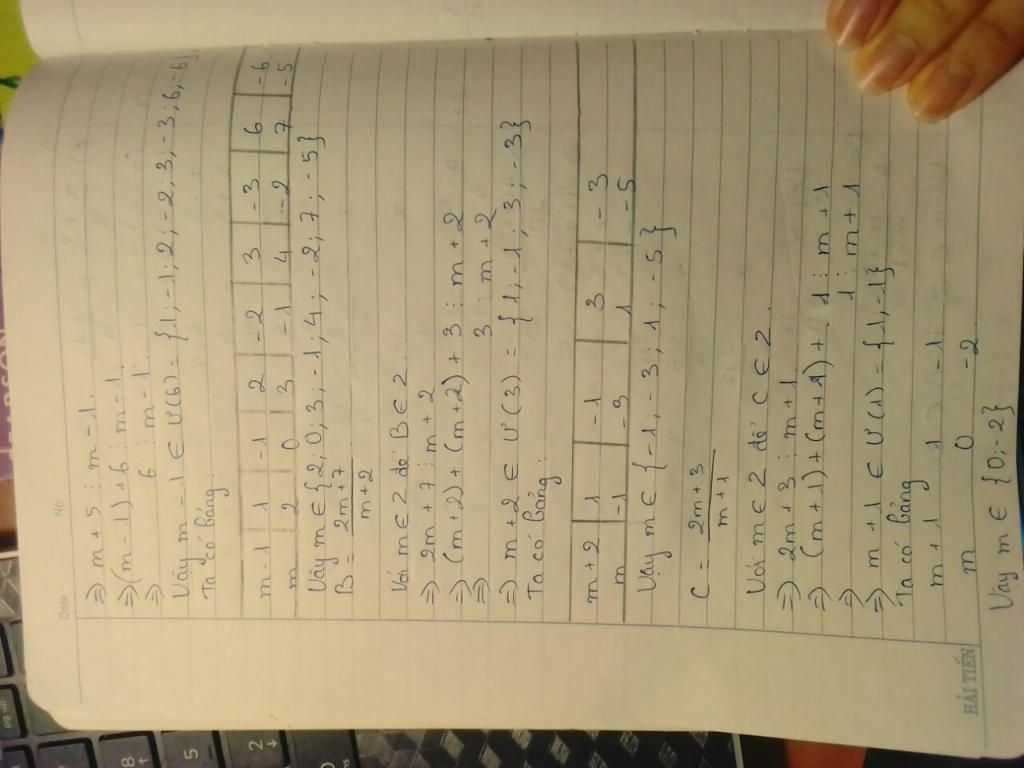 Date No.
=> m + 5 ⋮ m - 1.
=> (m - 1) + 6 ⋮ m - 1.
=> 6 ⋮ m - 1
Vậy m - 1 ∈ Ư(6) = {1; -1; 2; -2; 3; -3; 6; -6}
Ta có bảng:
m - 1 1 -1 2 -2 3 -3 6 -6
m 2 0 3 -1 4 -2 7 -5
Vậy m ∈ {2; 0; 3; -1; 4; -2; 7; -5}
B = 2m + 7 / m + 2
Với m ∈ Z để B ∈ Z
=> 2m + 7 ⋮ m + 2
=> (m + 2) + (m + 2) + 3 ⋮ m + 2
=> 3 ⋮ m + 2
=> m + 2 ∈ Ư(3) = {1; -1; 3; -3}
Ta có bảng:
m + 2 1 -1 3 -3
m -1 -3 1 -5
Vậy m ∈ {-1; -3; 1; -5}
C = 2m + 3 / m + 1
Với m ∈ Z để C ∈ Z
=> 2m + 3 ⋮ m + 1
=> (m + 1) + (m + 1) + 1 ⋮ m + 1
=> 1 ⋮ m + 1
=> m + 1 ∈ Ư(1) = {1; -1}
Ta có bảng
m + 1 1 -1
m 0 -2
Vậy m ∈ {0; -2}
HẢI TIẾN